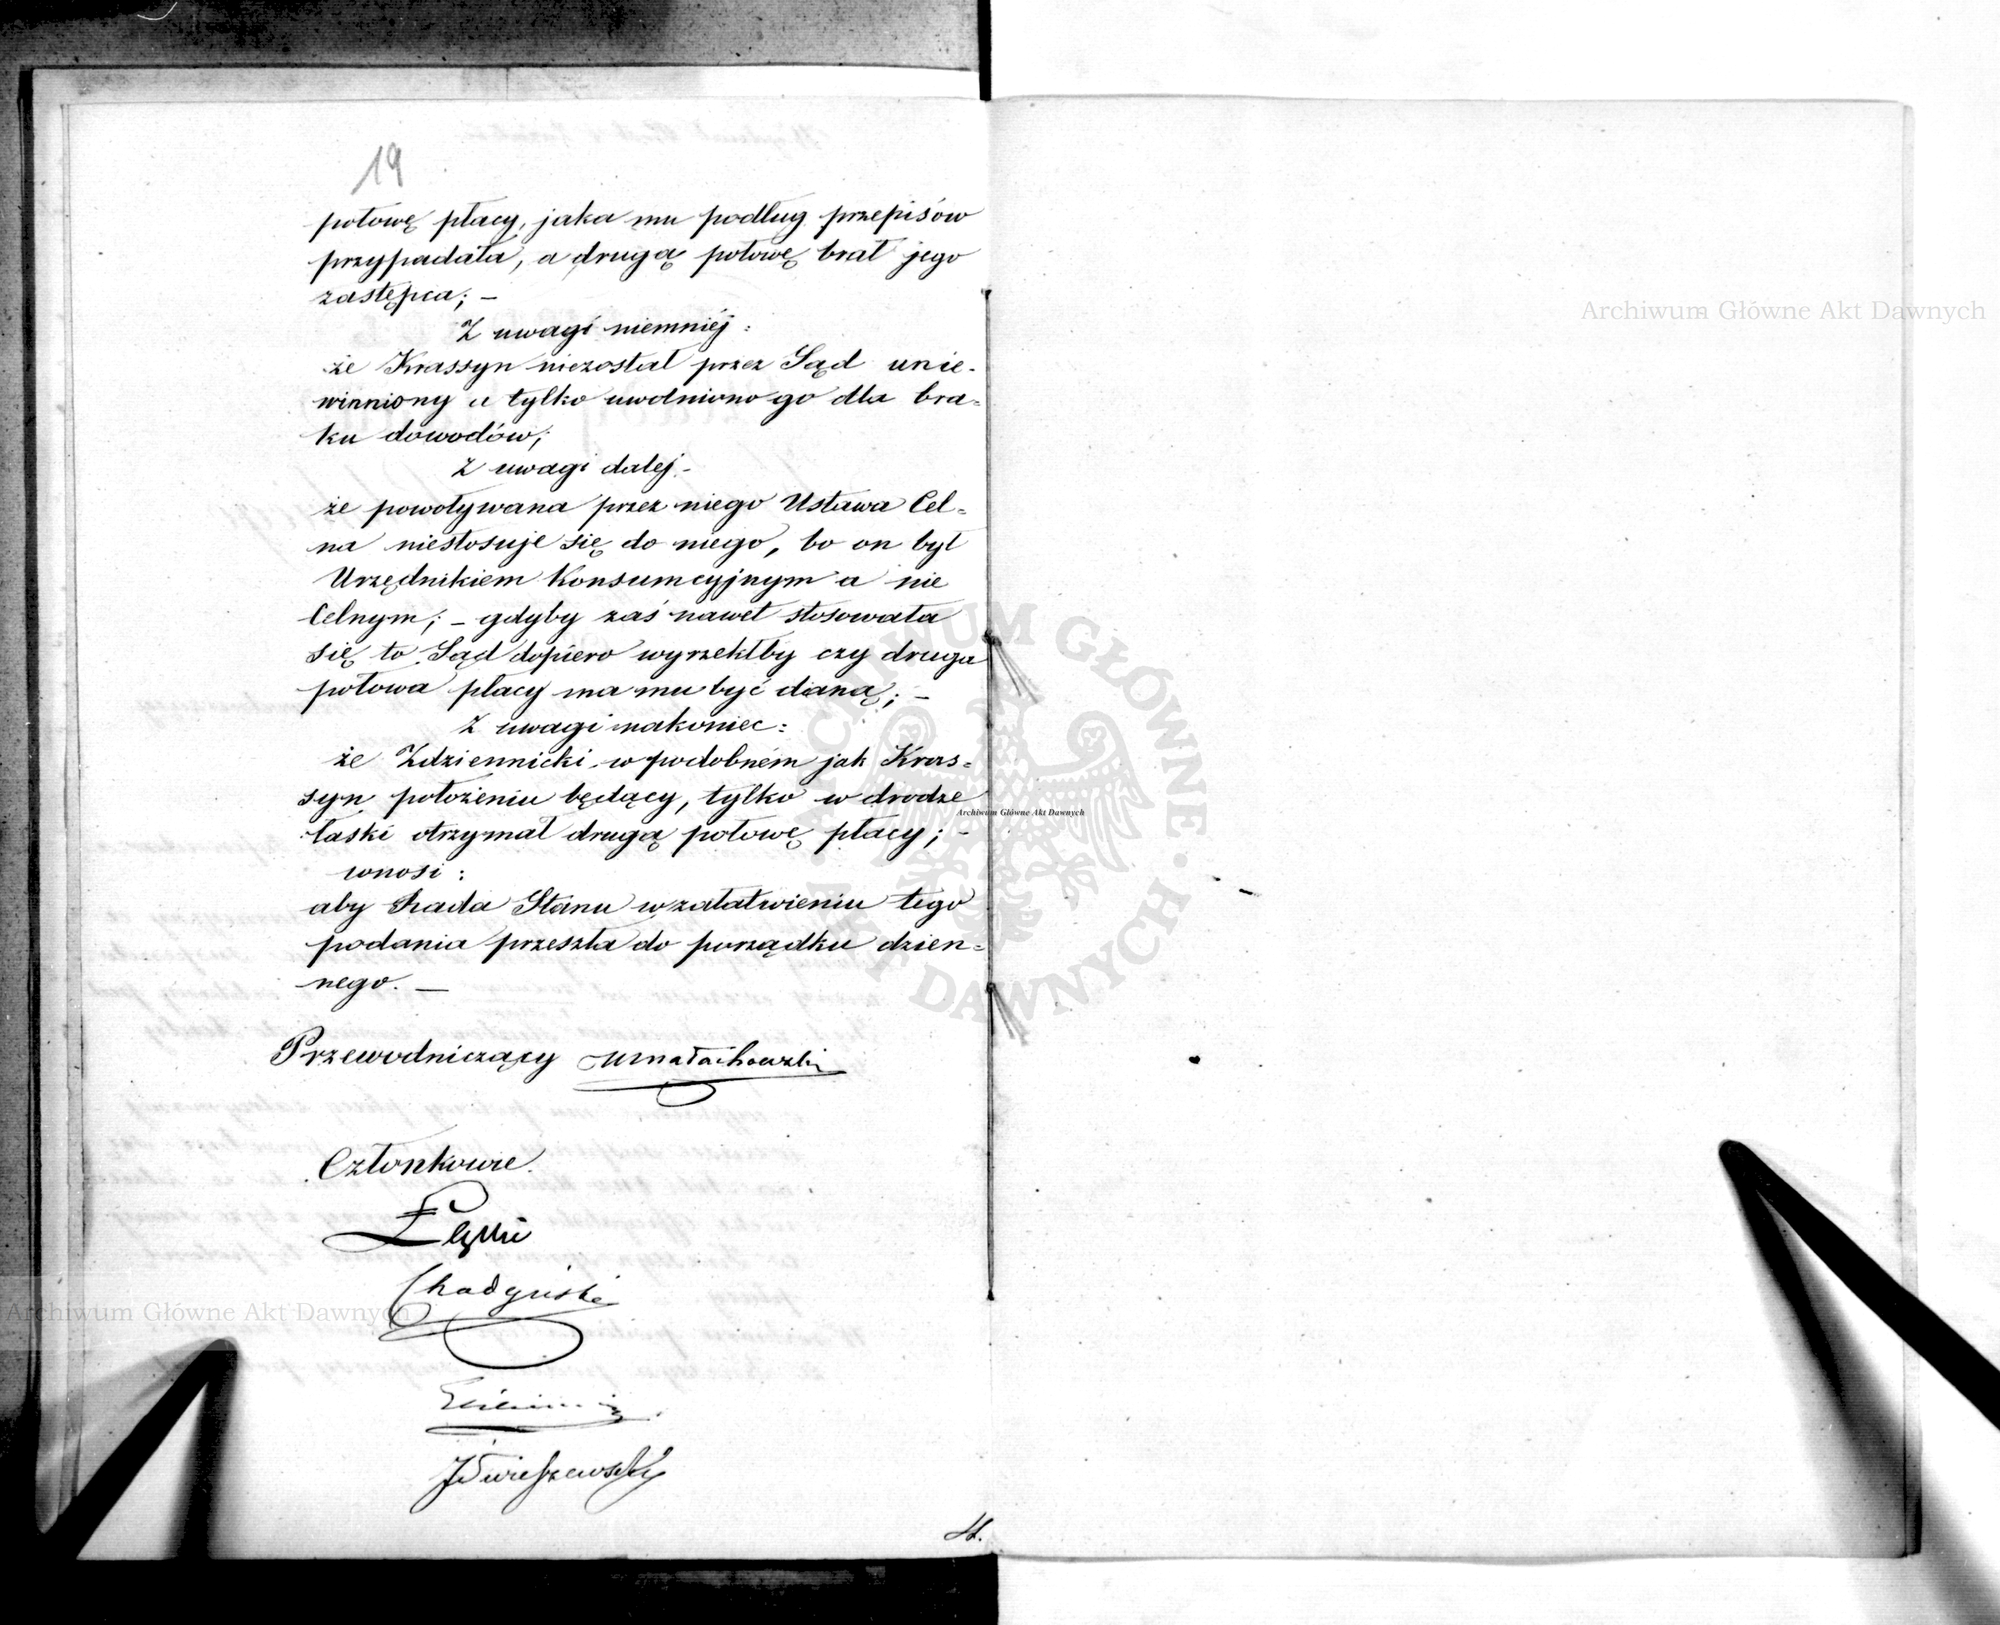 19
połowę płacy, jaka mu podług przepisów
przypadała, a drugą połowę brał jego
zastępca; –
Z uwagi niemniéj:
że Krassyn niezostał przez Sąd unie-
winniony a tylko uwolniono go dla bra-
ku dowodów;
Z uwagi dalej –
że powoływana przez niego Ustawa Cel-
na niestosuje się do niego, bo on był
Urzędnikiem Konsumcyjnym a nie
Celnym; – gdyby zaś nawet stosowała
się to Sąd dopiero wyrzekłby czy druga
połowa płacy ma mu być daną; –
Z uwagi nakoniec:
że Zdziennicki w podobném jak Kras-
syn położeniu będący, tylko w drodze
łaski otrzymał drugą połowę płacy; –
wnosi:
aby Rada Stanu w załatwieniu tego
podania przeszła do porządku dzien-
nego. –
Przewodniczący Małachowski
Członkowie.
Łęski
Chodyński
Archiwum Główne Akt Dawnych
Archiwum Główne Akt Dawnych
Archiwum Główne Akt Dawnych
ARCHIWUM GŁÓWNE AKT DAWNYCH